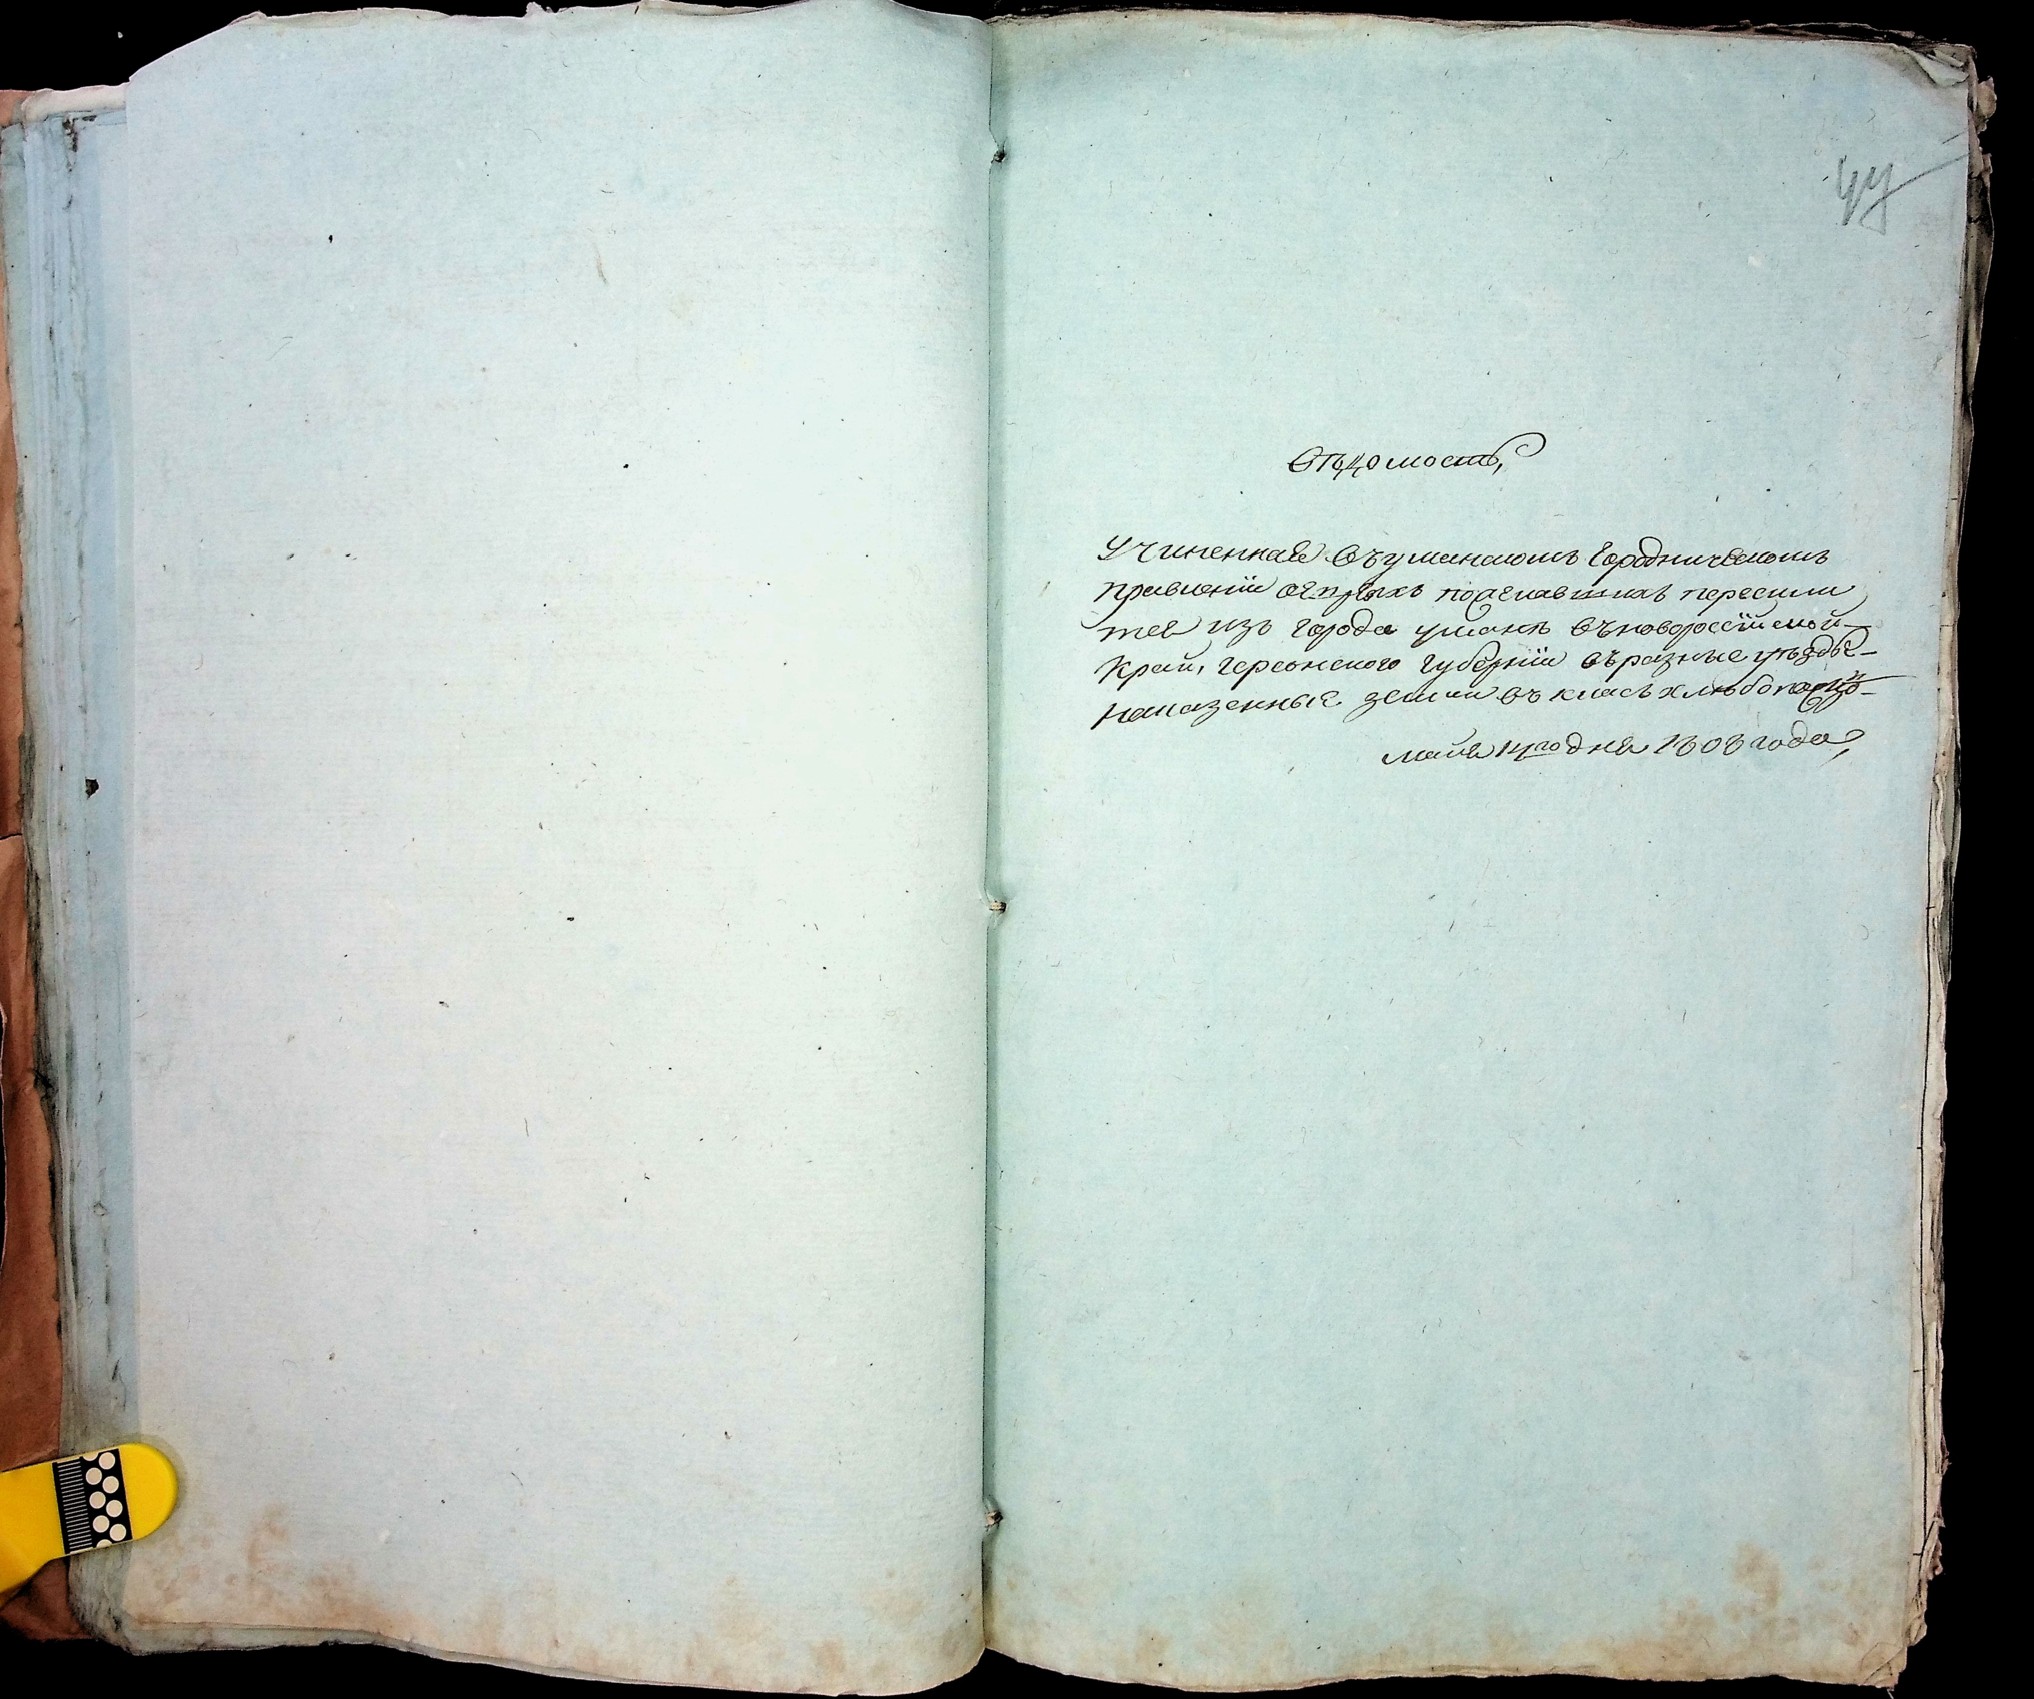 44
Вѣдомость,
Учиненная въ уманскомъ Городническомъ
правленіи оевреяхъ пожелавшихъ переселит
тся изъ города уманѣ въ новоросеійской
Край, херсонского губерніи въ разные уѣзды
на казенные земли въ класъ хлѣбопашцо
маія 14го дня 1808 года,